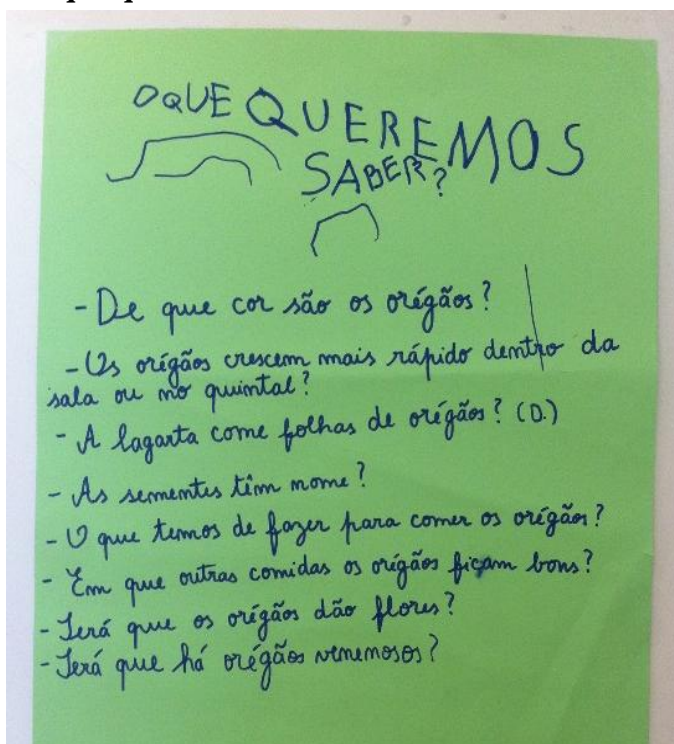 O QUE QUEREMOS
SABER?
- De que cor são os orégãos?
- Os orégãos crescem mais rápido dentro da
sala ou no quintal?
- A lagarta come folhas de orégãos? (D.)
- As sementes têm nome?
- O que temos de fazer para comer os orégãos?
- Em que outras comidas os orégãos ficam bons?
- Será que os orégãos dão flores?
- Será que há orégãos venenosos?